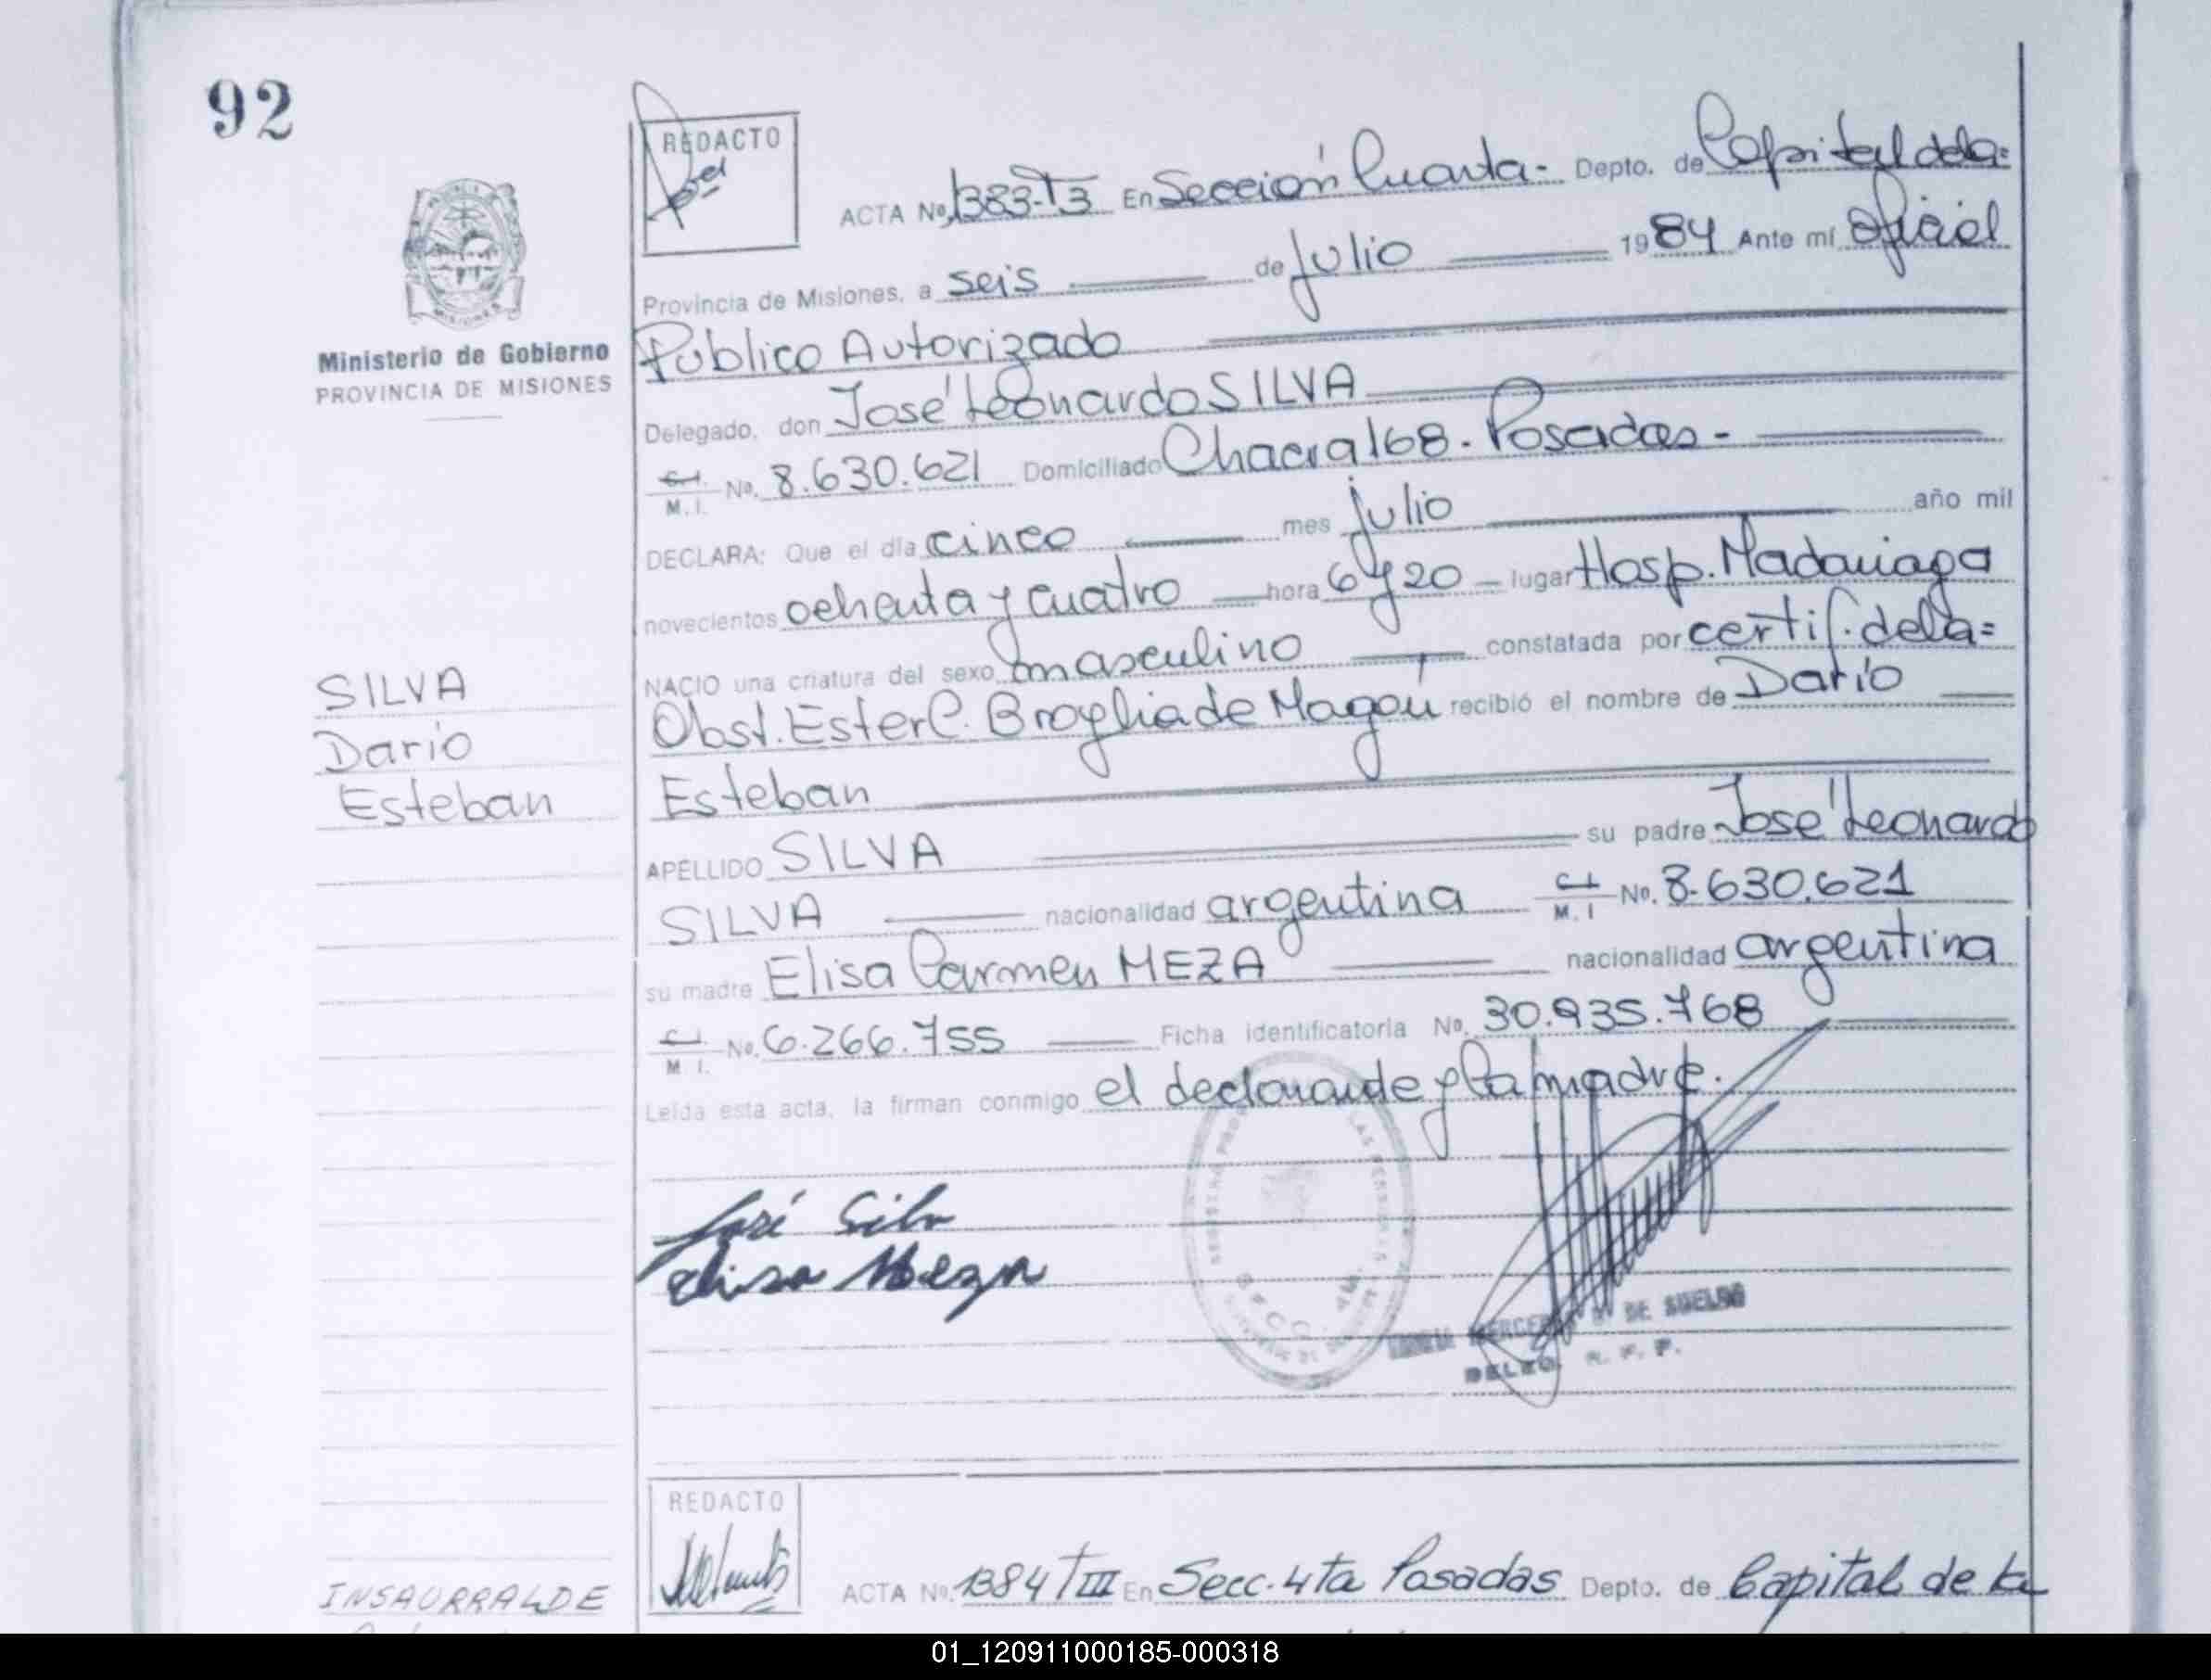 92
REDACTO
ACTA No. 1383-T3 En Sección Cuarta- Depto. de Capital de la=
Provincia de Misiones, a seis de julio 1984 Ante mí Oficial
Ministerio de Gobierno
PROVINCIA DE MISIONES
Público Autorizado
Delegado, don José Leonardo SILVA
C.I. M.I. No. 8.630.621 Domiciliado Chacra 168 - Posadas -
DECLARA: Que el día cinco mes julio año mil
novecientos ochenta y cuatro hora 6 y 20 lugar Hosp. Madariaga
NACIO una criatura del sexo masculino constatada por certif. de la=
Obst. Ester C. Broglia de Magoú recibió el nombre de Darío
Esteban
SILVA
Darío
Esteban
APELLIDO SILVA su padre José Leonardo
SILVA nacionalidad argentina C.I. M.I No. 8.630.621
su madre Elisa Carmen MEZA nacionalidad argentina
C.I. M I. No. 6.266.755 Ficha identificatoria No. 30.935.768
Leída esta acta, la firman conmigo el declarante y la madre.
José Silva
Elisa Meza
DE SUELDO
DELEG. R. P. P.
REDACTO
INSAURRALDE
ACTA No. 1384/TIII En Secc. 4ta Posadas Depto. de Capital de la
01_120911000185-000318